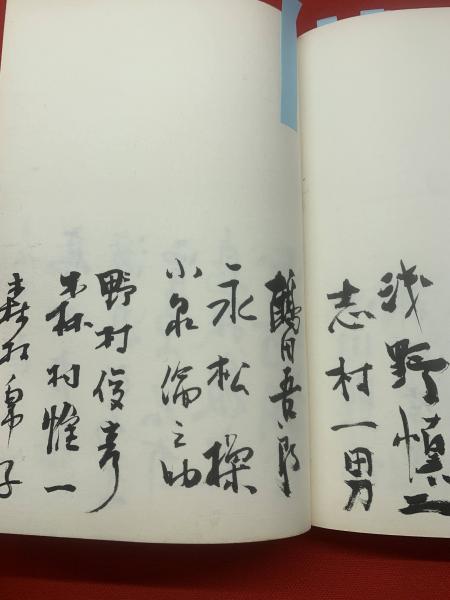 浅野慎二
志村一男
鶴目吾郎
永松操
小泉倫之助
野村俊彦
森村惟一
子